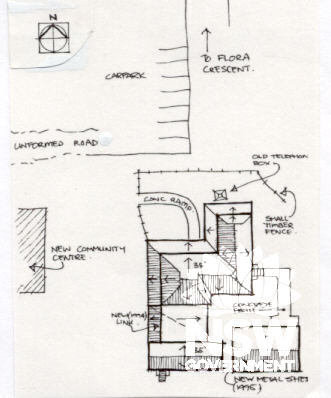 N
TO FLORA
CRESCENT.
CARPARK
UNFORMED ROAD
OLD TELEPHON
BOX
CONC RAMP
SMALL
TIMBER
FENCE.
NEW COMMUNITY
CENTRE.
35°
CONCRETE
NEW (1994)
LINK
35°
NSW
GOVERNMENT
NEW METAL SHED
(1995)